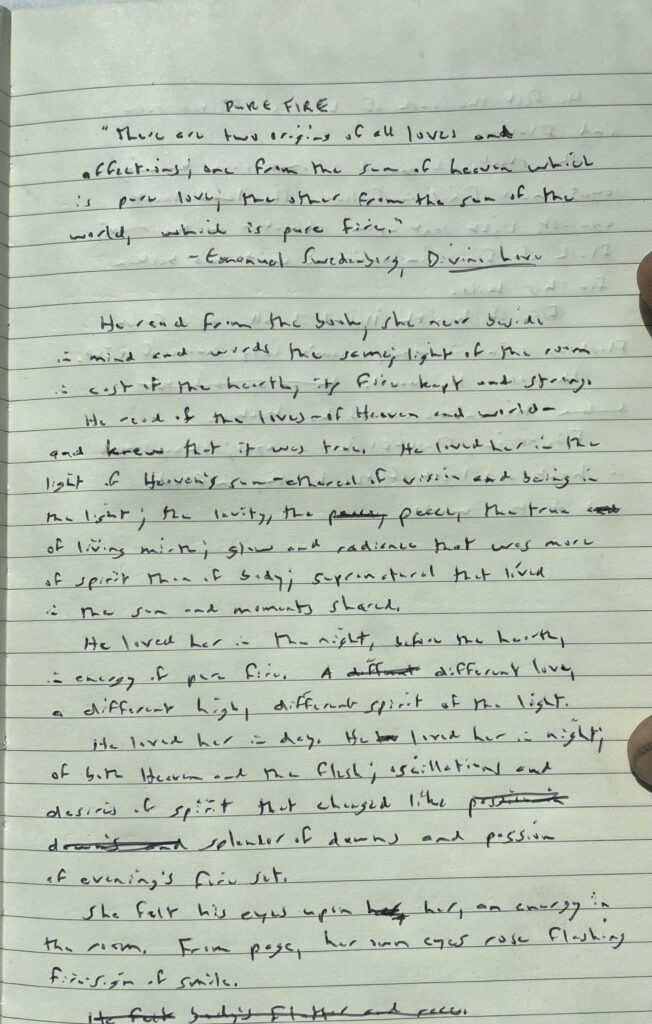 PURE FIRE
"There are two origins of all loves and
affections; one from the sun of heaven which
is pure love; the other from the sun of the
world, which is pure fire."
- Emanuel Swedenborg, Divine Love
He read from the book, she near beside
in mind and words the same; light of the room
in cast of the hearth, its fire kept and strong.
He read of the lives - of Heaven and world -
and knew that it was true. He loved her in the
light of Heaven's sun - ethereal of vision and being in
the light; the levity, the peace, the true
of living mirth; glow and radiance that was more
of spirit than of body; supranatural that lived
in the sun and moments shared.
He loved her in the night, before the hearth,
in energy of pure fire. A different love,
a different high, different spirit of the light.
He loved her in day. He loved her in night;
of both Heaven and the flesh; oscillations and
desires of spirit that changed like
splendor of dawns and passion
of evening's fire set.
She felt his eyes upon her, an energy in
the room. From page, her own eyes rose flashing
firesign of smile.
He felt body's flutter and